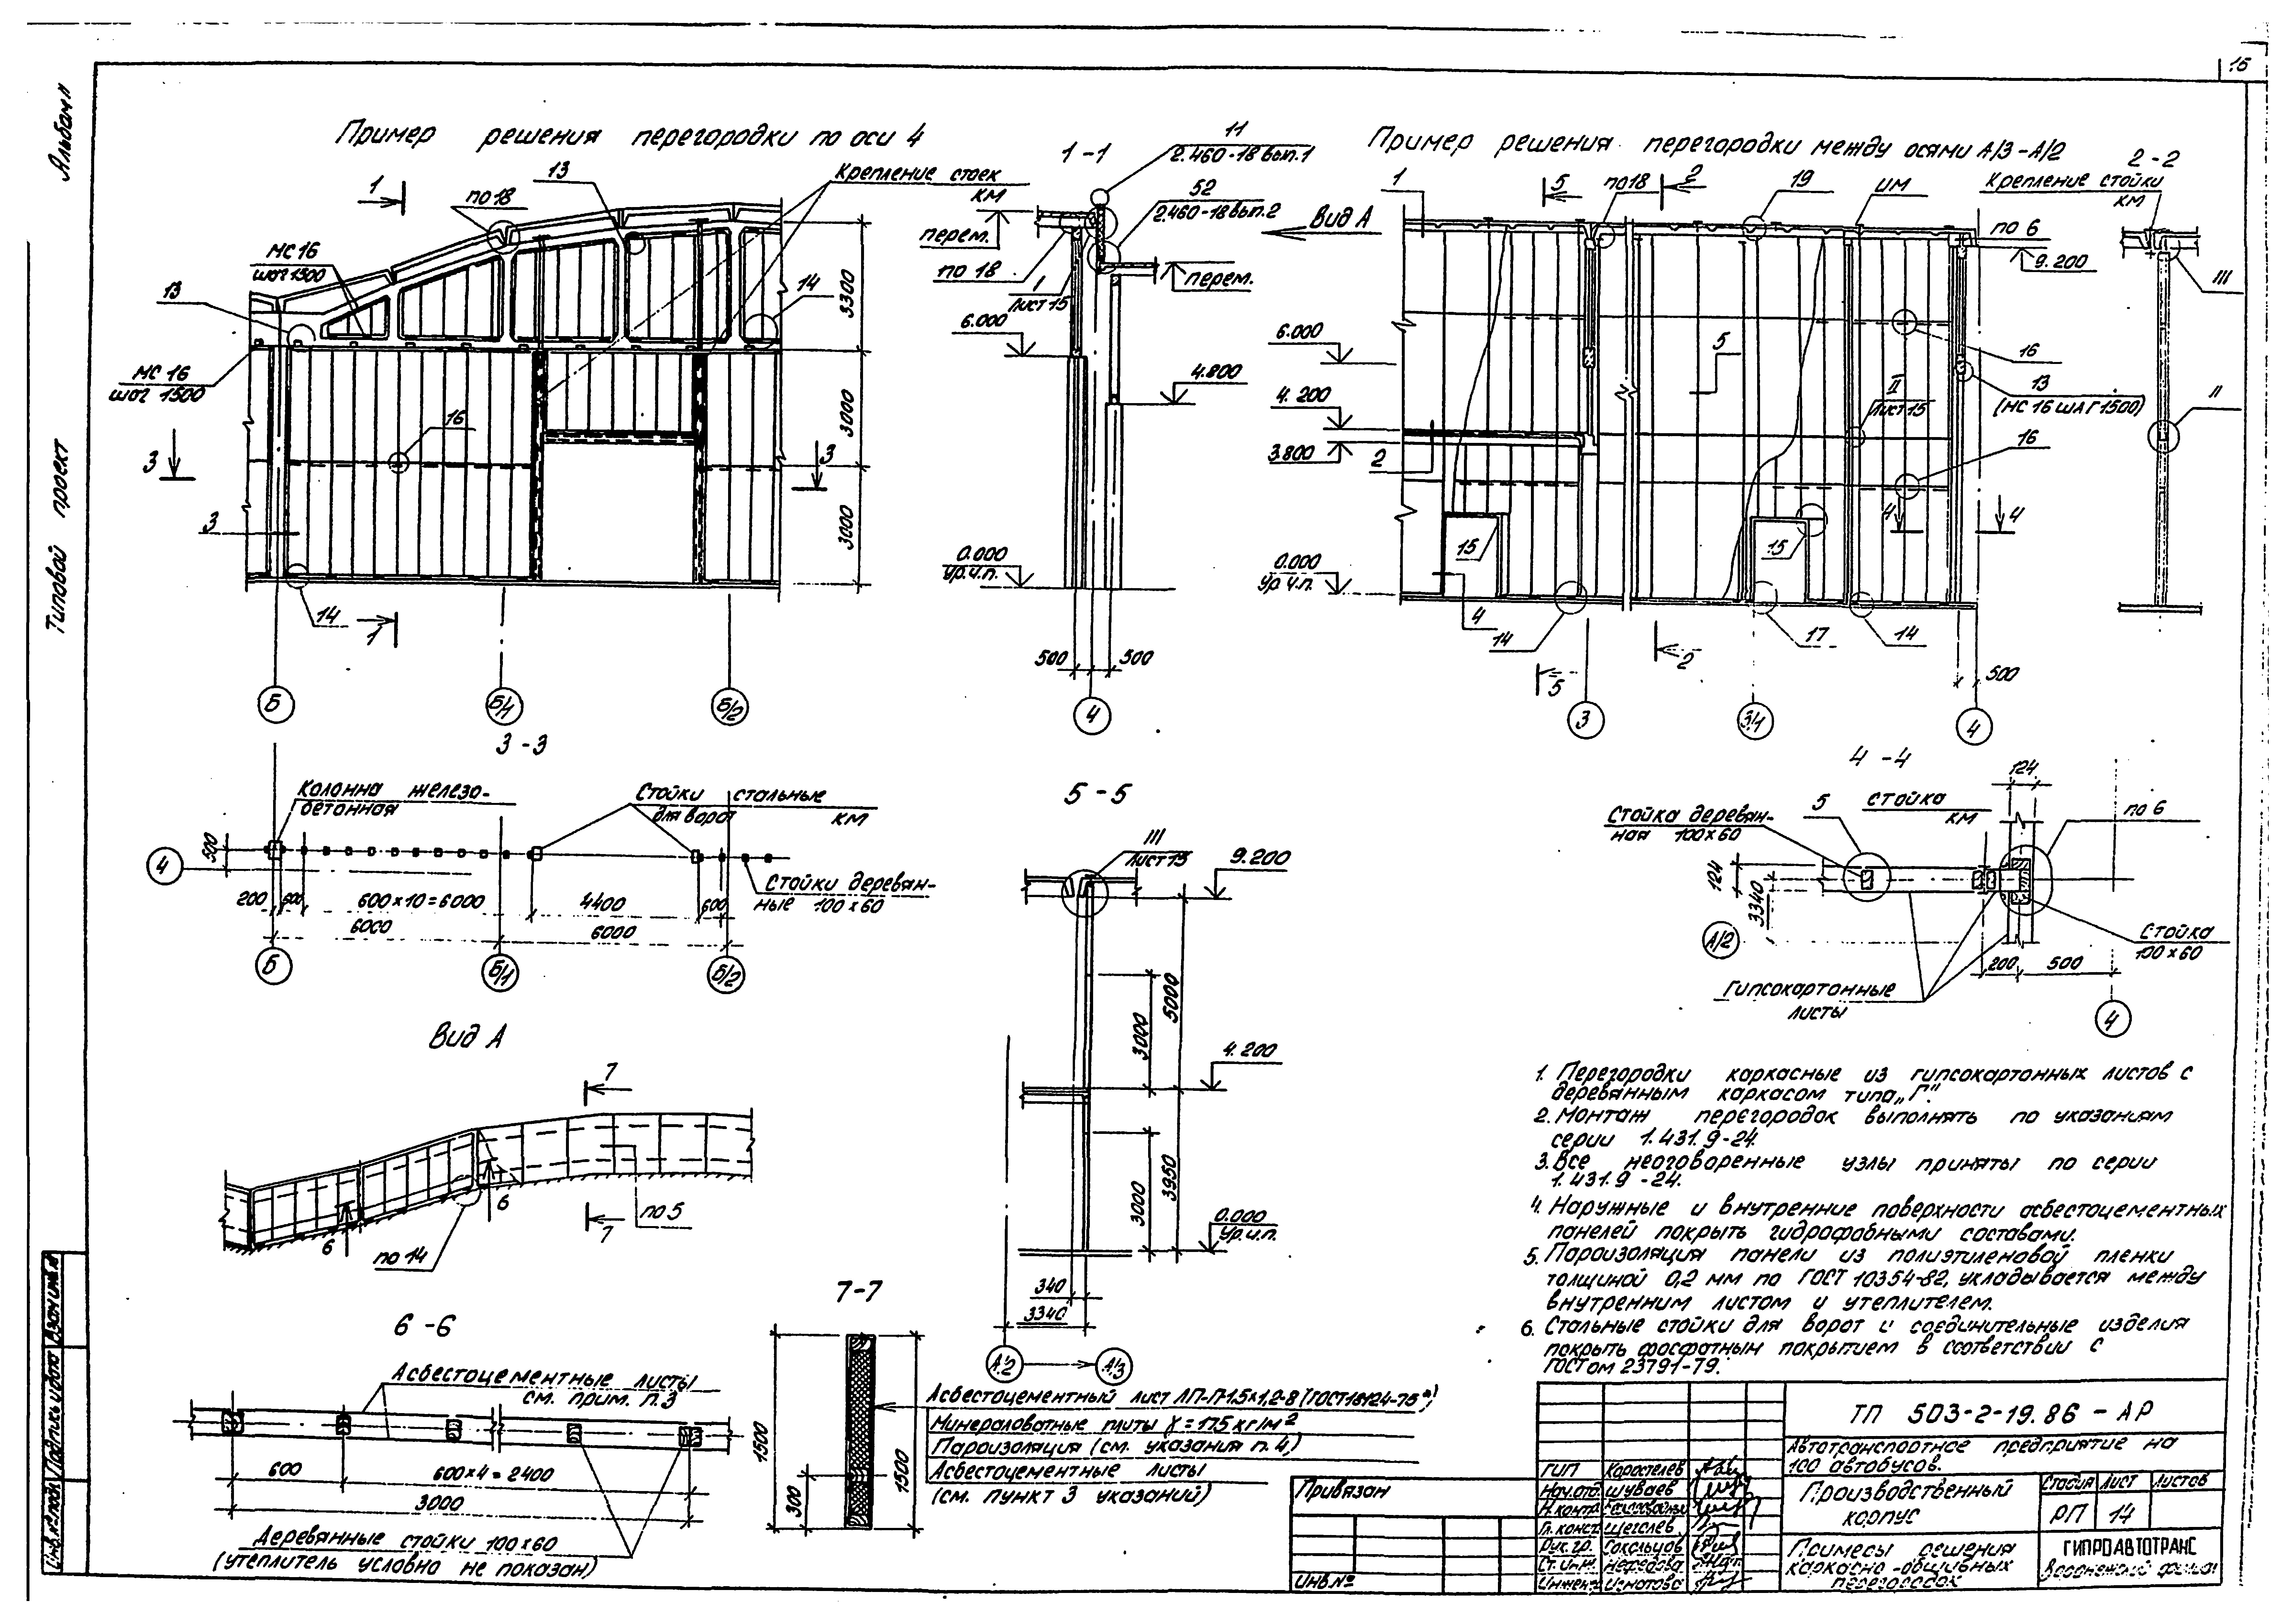 15
Альбом II
Типовой проект
Пример решения перегородки по оси 4
1
по 18
13
Крепление стоек
КМ
МС 16
шаг 1500
13
14
3300
МС 16
шаг 1500
16
3000
3
3
3
3000
14
1
Б
Б/1
Б/2
1-1
11
2.460-18 вып.1
52
2.460-18 вып.2
перем.
по 18
1
Лист 15
перем.
6.000
4.800
0.000
Ур.ч.п.
500
500
4
Вид А
Пример решения перегородки между осями А/3-А/2
1
5
по 18
2
19
ИМ
по 6
9.200
6.000
5
16
4.200
II
Лист 15
13
(МС 16 ШАГ 1500)
3.800
2
16
4
4
15
15
0.000
Ур.ч.п.
4
14
17
14
2
5
500
3
3/1
4
2-2
Крепление стойки
КМ
III
II
3-3
Колонна железо-
бетонная
Стойки стальные
для ворот КМ
4
500
Стойки деревян-
ные 100х60
200
600
600х10=6000
4400
600
6000
6000
Б
Б/1
Б/2
5-5
III
Лист 15
9.200
5000
3000
4.200
3950
3000
0.000
Ур.ч.п.
340
3340
А/2
А/3
4-4
124
Стойка деревян-
ная 100х60
5
стойка
КМ
по 6
124
3340
А/2
Стойка
100х60
200
500
Гипсокартонные
листы
4
Вид А
7
6
6
по 5
7
по 14
6-6
Асбестоцементные листы
см. прим. п.3
600
600х4=2400
3000
Деревянные стойки 100х60
(утеплитель условно не показан)
7-7
1500
300
1500
Асбестоцементный лист ЛП-П-1,5х1,2-8 (ГОСТ 18124-75*)
Минераловатные плиты γ=175 кг/м²
Пароизоляция (см. указания п.4)
Асбестоцементные листы
(см. пункт 3 указаний)
1. Перегородки каркасные из гипсокартонных листов с
деревянным каркасом типа „Г".
2. Монтаж перегородок выполнять по указаниям
серии 1.431.9-24.
3. Все неоговоренные узлы приняты по серии
1.431.9-24.
4. Наружные и внутренние поверхности асбестоцементных
панелей покрыть гидрофобными составами.
5. Пароизоляция панели из полиэтиленовой пленки
толщиной 0,2 мм по ГОСТ 10354-82, укладывается между
внутренним листом и утеплителем.
6. Стальные стойки для ворот и соединительные изделия
покрыть фосфатным покрытием в соответствии с
ГОСТом 23791-79.
ТП 503-2-19.86 - АР
Автотранспортное предприятие на
100 автобусов.
Производственный
корпус
Стадия Лист Листов
РП 14
Примеры решения
каркасно-обшивных
перегородок
ГИПРОАВТОТРАНС
Воронежский филиал
ГИП Коростелев
Нач.отд. Шуваев
Н.контр.
Гл.конст. Щеголев
Рук.гр. Сокольцов
Ст.инж. Нефедова
Инжен. Игнатова
Привязан
Инв.№
Инв.№ подл.
Подпись и дата
Взам.инв.№